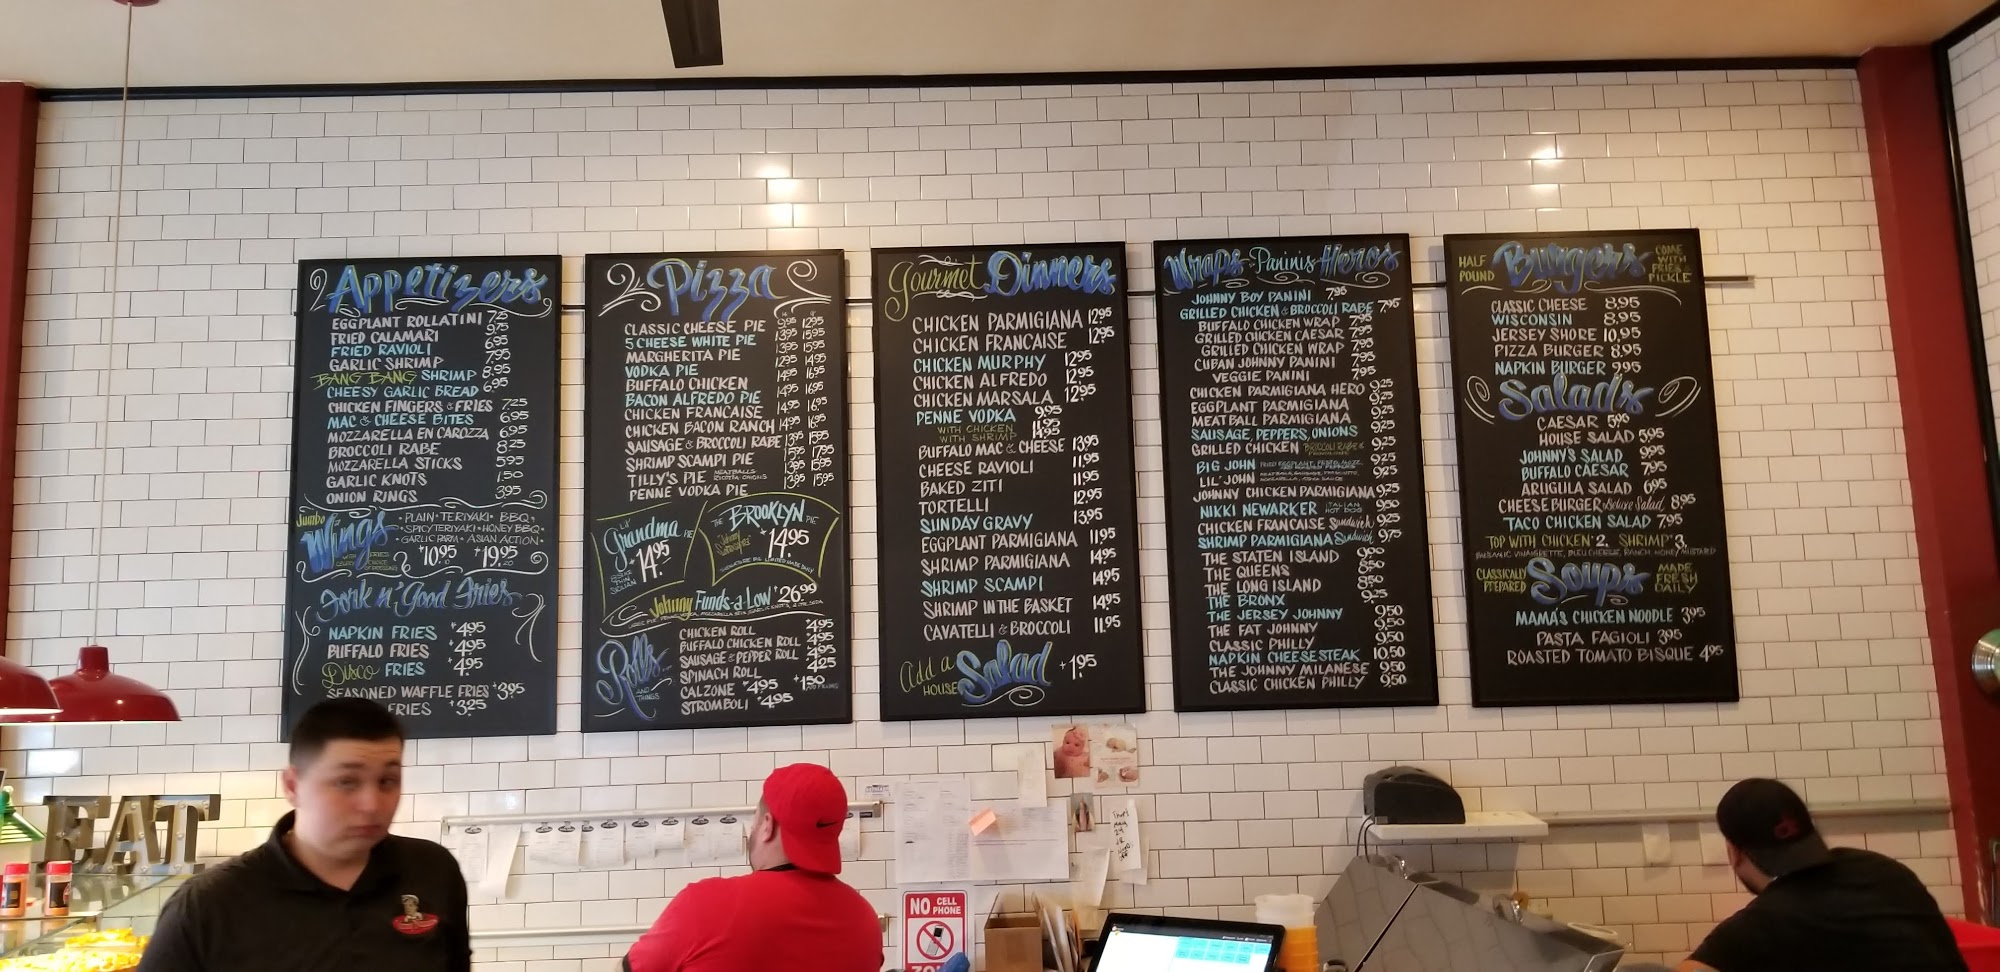 Appetizers
EGGPLANT ROLLATINI 7.25
FRIED CALAMARI 9.75
FRIED RAVIOLI 6.95
GARLIC SHRIMP 7.95
BANG BANG SHRIMP 8.95
CHEESY GARLIC BREAD 6.95
CHICKEN FINGERS & FRIES 7.25
MAC & CHEESE BITES 6.95
MOZZARELLA EN CAROZZA 6.95
BROCCOLI RABE 8.25
MOZZARELLA STICKS 5.95
GARLIC KNOTS 1.50
ONION RINGS 3.95
Jumbo Wings
• PLAIN • TERIYAKI • BBQ •
• SPICY TERIYAKI • HONEY BBQ •
• GARLIC PARM • ASIAN ACTION •
$10.95 10 $19.95 20
Fork n' Good Fries
NAPKIN FRIES $4.95
BUFFALO FRIES $4.95
Disco FRIES $4.95
SEASONED WAFFLE FRIES $3.95
FRIES $3.25
Pizza
CLASSIC CHEESE PIE 9.95 12.95
5 CHEESE WHITE PIE 13.95 15.95
MARGHERITA PIE 13.95 15.95
VODKA PIE 12.95 14.95
BUFFALO CHICKEN 14.95 16.95
BACON ALFREDO PIE 14.95 16.95
CHICKEN FRANCAISE 14.95 16.95
CHICKEN BACON RANCH 14.95 16.95
SAUSAGE & BROCCOLI RABE 13.95 15.95
SHRIMP SCAMPI PIE 15.95 17.95
TILLY'S PIE MEATBALLS RICOTTA ONIONS 13.95 15.95
PENNE VODKA PIE 13.95 15.95
Lil' Grandma PIE
$14.95
THE BROOKLYN PIE
$14.95
Johnny Funds-a-Low $26.99
Rolls AND THINGS
CHICKEN ROLL 4.95
BUFFALO CHICKEN ROLL 4.95
SAUSAGE & PEPPER ROLL 4.95
SPINACH ROLL 4.25
CALZONE $4.95 +1.50
STROMBOLI $4.95
Gourmet Dinners
CHICKEN PARMIGIANA 12.95
CHICKEN FRANCAISE 12.95
CHICKEN MURPHY 12.95
CHICKEN ALFREDO 12.95
CHICKEN MARSALA 12.95
PENNE VODKA 9.95
WITH CHICKEN 11.95
WITH SHRIMP 14.95
BUFFALO MAC & CHEESE 13.95
CHEESE RAVIOLI 11.95
BAKED ZITI 11.95
TORTELLI 12.95
SUNDAY GRAVY 13.95
EGGPLANT PARMIGIANA 11.95
SHRIMP PARMIGIANA 14.95
SHRIMP SCAMPI 14.95
SHRIMP IN THE BASKET 14.95
CAVATELLI & BROCCOLI 11.95
Add a HOUSE Salad +1.95
Wraps • Paninis Heros
JOHNNY BOY PANINI 7.95
GRILLED CHICKEN & BROCCOLI RABE 7.95
BUFFALO CHICKEN WRAP 7.95
GRILLED CHICKEN CAESAR 7.95
GRILLED CHICKEN WRAP 7.95
CUBAN JOHNNY PANINI 7.95
VEGGIE PANINI 7.95
CHICKEN PARMIGIANA HERO 9.25
EGGPLANT PARMIGIANA 9.25
MEATBALL PARMIGIANA 9.25
SAUSAGE, PEPPERS, ONIONS 9.25
GRILLED CHICKEN BROCCOLI RABE & PROVOLONE 9.25
BIG JOHN 9.25
LIL' JOHN 9.25
JOHNNY CHICKEN PARMIGIANA 9.25
NIKKI NEWARKER ITALIAN HOT DOG 9.50
CHICKEN FRANCAISE Sandwich 9.25
SHRIMP PARMIGIANA Sandwich 9.75
THE STATEN ISLAND
THE QUEENS 8.50
THE LONG ISLAND 8.50
THE BRONX 9.25
THE JERSEY JOHNNY 9.50
THE FAT JOHNNY 9.50
CLASSIC PHILLY 9.50
NAPKIN CHEESESTEAK 10.50
THE JOHNNY MILANESE 9.50
CLASSIC CHICKEN PHILLY 9.50
HALF POUND Burgers COME WITH FRIES & PICKLE
CLASSIC CHEESE 8.95
WISCONSIN 8.95
JERSEY SHORE 10.95
PIZZA BURGER 8.95
NAPKIN BURGER 9.95
Salads
CAESAR 5.95
HOUSE SALAD 5.95
JOHNNY'S SALAD 9.95
BUFFALO CAESAR 7.95
ARUGULA SALAD 6.95
CHEESEBURGER Deluxe Salad 8.95
TACO CHICKEN SALAD 7.95
TOP WITH CHICKEN $2. SHRIMP $3.
BALSAMIC VINAIGRETTE, BLEU CHEESE, RANCH, HONEY MUSTARD
CLASSICALLY PREPARED Soups MADE FRESH DAILY
MAMA'S CHICKEN NOODLE 3.95
PASTA FAGIOLI 3.95
ROASTED TOMATO BISQUE 4.95
EAT
NO CELL PHONE